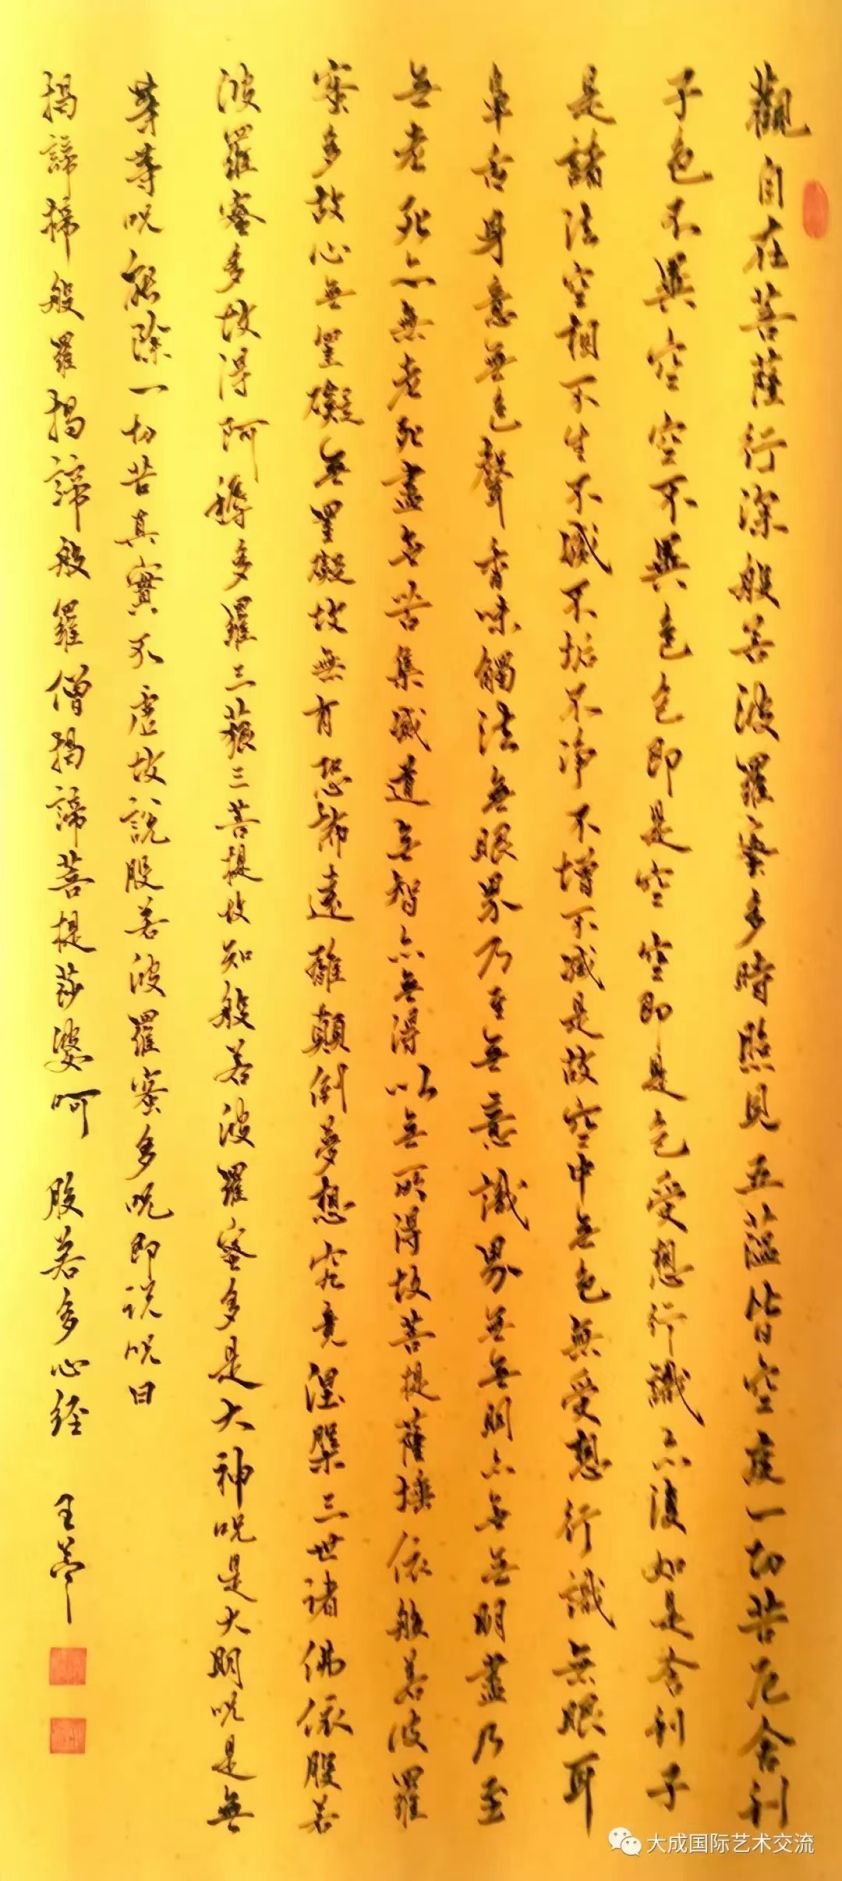 觀自在菩薩行深般若波羅蜜多時照見五蘊皆空度一切苦厄舍利
子色不異空空不異色色即是空空即是色受想行識亦復如是舍利子
是諸法空相不生不滅不垢不淨不增不減是故空中無色無受想行識無眼耳
鼻舌身意無色聲香味觸法無眼界乃至無意識界無無明亦無無明盡乃至
無老死亦無老死盡無苦集滅道無智亦無得以無所得故菩提薩埵依般若波羅
蜜多故心無罣礙無罣礙故無有恐怖遠離顛倒夢想究竟涅槃三世諸佛依般若
波羅蜜多故得阿耨多羅三藐三菩提故知般若波羅蜜多是大神呪是大明呪是無
等等呪能除一切苦真實不虛故說般若波羅蜜多呪即说呪曰
揭諦般羅揭諦般羅僧揭諦菩提莎婆呵 般若多心经 王
大成国际艺术交流